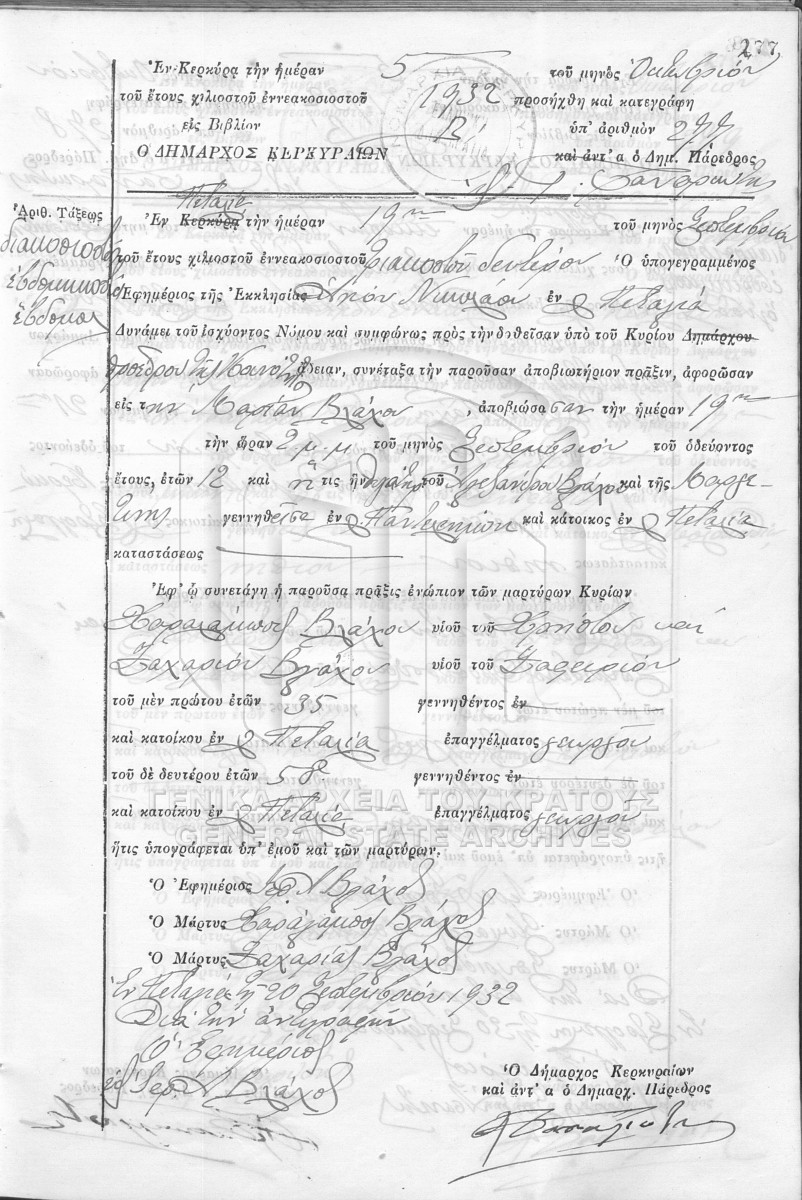 277
Ἐν Κερκύρᾳ τὴν ἡμέραν 5 τοῦ μηνὸς Ὀκτωβρίου
τοῦ ἔτους χιλιοστοῦ ἐννεακοσιοστοῦ 1932 προσήχθη καὶ κατεγράφη
εἰς Βιβλίον Β' ὑπ' ἀριθμὸν 277
Ὁ ΔΗΜΑΡΧΟΣ ΚΕΡΚΥΡΑΙΩΝ καὶ ἀντ' α ὁ Δημ. Πάρεδρος
Πεταλιᾷ
Ἀριθ. Τάξεως
διακοσιοστὸς
ἑβδομηκοστὸς
ἕβδομος
Ἐν Κερκύρᾳ τὴν ἡμέραν 19ην τοῦ μηνὸς Σεπτεμβρίου
τοῦ ἔτους χιλιοστοῦ ἐννεακοσιοστοῦ τριακοστοῦ δευτέρου Ὁ ὑπογεγραμμένος
Ἐφημέριος τῆς Ἐκκλησίας Ἁγίου Νικολάου ἐν Πεταλιᾷ
Δυνάμει τοῦ ἰσχύοντος Νόμου καὶ συμφώνως πρὸς τὴν δοθεῖσαν ὑπὸ τοῦ Κυρίου Δημάρχου
προέδρου τῆς Κοινότητος ἄδειαν, συνέταξα τὴν παροῦσαν ἀποβιωτήριον πρᾶξιν, ἀφορῶσαν
εἰς τὴν Μαρίαν Βλάχου, ἀποβιώσασαν τὴν ἡμέραν 19ην
τὴν ὥραν 2 μ.μ. τοῦ μηνὸς Σεπτεμβρίου τοῦ ὁδεύοντος
ἔτους, ἐτῶν 12 καὶ ἥτις ἦν θυγάτηρ τοῦ Ἀλεξάνδρου Βλάχου καὶ τῆς Μαργε-
τίνης γεννηθεῖσα ἐν καὶ κάτοικος ἐν Πεταλιᾷ
καταστάσεως
Ἐφ' ᾧ συνετάγη ἡ παροῦσα πρᾶξις ἐνώπιον τῶν μαρτύρων Κυρίων
Χαραλάμπους Βλάχου υἱοῦ τοῦ Χρήστου καὶ
Ζαχαρίου Βλάχου υἱοῦ τοῦ Σαφειρίου
τοῦ μὲν πρώτου ἐτῶν 35 γεννηθέντος ἐν
καὶ κατοίκου ἐν Πεταλιᾷ ἐπαγγέλματος γεωργοῦ
τοῦ δὲ δευτέρου ἐτῶν 58 γεννηθέντος ἐν
καὶ κατοίκου ἐν Πεταλιᾷ ἐπαγγέλματος γεωργοῦ
ΓΕΝΙΚΑ ΑΡΧΕΙΑ ΤΟΥ ΚΡΑΤΟΥΣ
GENERAL STATE ARCHIVES
ἥτις ὑπογράφεται ὑπ' ἐμοῦ καὶ τῶν μαρτύρων.
Ὁ Ἐφημέριος Ἱερ. Βλάχος
Ὁ Μάρτυς Χαράλαμπος Βλάχος
Ὁ Μάρτυς Ζαχαρίας Βλάχος
Ἐν Πεταλιᾷ τῇ 20 Σεπτεμβρίου 1932
Διὰ τὴν ἀντιγραφήν
Ὁ Ἐφημέριος
Ἱερ. Βλάχος
Ὁ Δήμαρχος Κερκυραίων
καὶ ἀντ' α ὁ Δημαρχ. Πάρεδρος